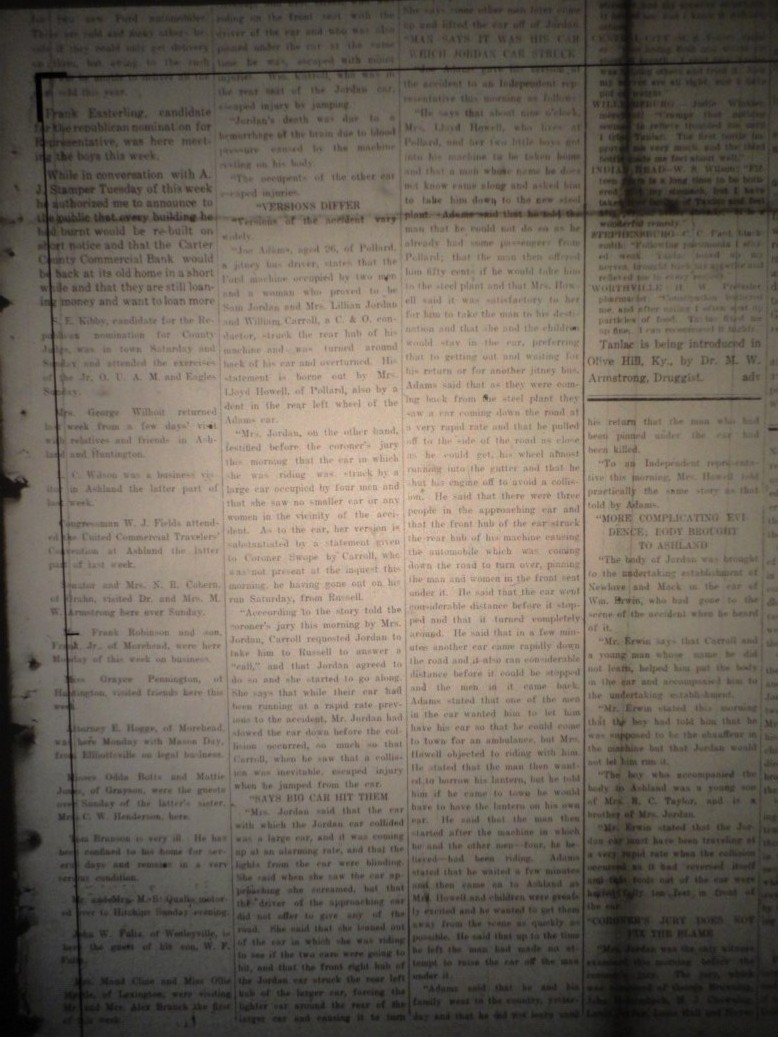 riding on the front seat with the
driver of the car and who was also
pinned under the car at the same
time he was, escaped with minor
injuries. Wm. Carroll, who was in
the rear seat of the Jordan car,
escaped injury by jumping.
"Jordan's death was due to a
hemorrhage of the brain due to blood
pressure caused by the machine
resting on his body.
"The occupents of the other car
escaped injuries.
"VERSIONS DIFFER
"Versions of the accident vary
widely.
"Joe Adams, aged 26, of Pollard,
a jitney bus driver, states that the
Ford machine occupied by two men
and a woman who proved to be
Sam Jordan and Mrs. Lillian Jordan
and William Carroll, a C. & O. con-
ductor, struck the rear hub of his
machine and was turned around
back of his car and overturned. His
statement is borne out by Mrs.
Lloyd Howell, of Pollard, also by a
dent in the rear left wheel of the
Adams car.
"Mrs. Jordan, on the other hand,
testified before the coroner's jury
this morning that the car in which
she was riding was struck by a
large car occupied by four men and
that she saw no smaller car or any
women in the vicinity of the acci-
dent. As to the car, her version is
substantiated by a statement given
to Coroner Swope by Carroll, who
was not present at the inquest this
morning, he having gone out on his
run Saturday, from Russell.
"Acccording to the story told the
coroner's jury this morning by Mrs.
Jordan, Carroll requested Jordan to
take him to Russell to answer a
"call," and that Jordan agreed to
do so and she started to go along.
She says that while their car had
been running at a rapid rate prev-
ious to the accident, Mr. Jordan had
slowed the car down before the col-
lision occurred, so much so that
Carroll, when he saw that a collis-
ion was inevitable, escaped injury
when he jumped from the car.
"SAYS BIG CAR HIT THEM
"Mrs. Jordan said that the car
with which the Jordan car collided
was a large car, and it was coming
up at an alarming rate, and that the
lights from the car were blinding.
She said when she saw the car ap-
proaching she screamed, but that
the driver of the approaching car
did not offer to give any of the
road. She said that she leaned out
of the car in which she was riding
to see if the two cars were going to
hit, and that the front right hub of
the Jordan car struck the rear left
hub of the larger car, forcing the
lighter car around the rear of the
larger car and causing it to turn
Frank Easterling, candidate
for the republican nomination for
Representative, was here meet-
ing the boys this week.
While in conversation with A.
J. Stamper Tuesday of this week
he authorized me to announce to
the public that every building he
had burnt would be re-built on
short notice and that the Carter
County Commercial Bank would
be back at its old home in a short
while and that they are still loan-
ing money and want to loan more
S. E. Kibby, candidate for the Re-
publican nomination for County
Judge, was in town Saturday and
Sunday and attended the exercises
of the Jr. O. U. A. M. and Eagles
Sunday.
Mrs. George Wilhoit returned
last week from a few days' visit
with relatives and friends in Ash-
land and Huntington.
C. Wilson was a business vis-
itor in Ashland the latter part of
last week.
Congressman W. J. Fields attend-
ed the United Commercial Travelers'
Convention at Ashland the latter
part of last week.
Senator and Mrs. N. R. Cobern,
visited Dr. and Mrs. M.
W. Armstrong here over Sunday.
Frank Robinson and son,
Frank, Jr., of Morehead, were here
Monday of this week on business.
Miss Grayce Pennington, of
Huntington, visited friends here this
week.
Attorney E. Hogge, of Morehead,
was here Monday with Mason Day,
from Elliottsville on legal business.
Misses Odda Butts and Mattie
Jones, of Grayson, were the guests
over Sunday of the latter's sister,
Mrs. C. W. Henderson, here.
Tom Branson is very ill. He has
been confined to his home for sev-
eral days and remains in a very
serious condition.
motor-
ed over to Hitchins Sunday evening.
John W. Fultz, of Wesleyville, is
here the guest of his son, W. F.
Fultz.
Mrs. Maud Cline and Miss Ollie
of Lexington, were visiting
Mr. and Mrs. Alex Branch the first
of this week.
She says some other men later came
up and lifted the car off of Jordan
"MAN SAYS IT WAS HIS CAR
WHICH JORDAN CAR STRUCK
the accident to an Independent rep-
resentative this morning as follows:
"He says that about nine o'clock,
Mrs. Lloyd Howell, who lives at
Pollard, and her two little boys got
into his machine to be taken home
and that a man whose name he does
not know came along and asked him
to take him down to the new steel
plant. Adams said that he told the
man that he could not do so as he
already had some passengers from
Pollard; that the man then offered
him fifty cents if he would take him
to the steel plant and that Mrs. How-
ell said it was satisfactory to her
for him to take the man to his desti-
nation and that she and the children
would stay in the car, preferring
that to getting out and waiting for
his return or for another jitney bus.
Adams said that as they were com-
ing back from the steel plant they
saw a car coming down the road at
a very rapid rate and that he pulled
off to the side of the road as close
as he could get, his wheel almost
running into the gutter and that he
shut his engine off to avoid a collis-
ion. He said that there were three
people in the approaching car and
that the front hub of the car struck
the rear hub of his machine causing
the automobile which was coming
down the road to turn over, pinning
the man and women in the front seat
under it. He said that the car went
considerable distance before it stop-
ped and that it turned completely
around. He said that in a few min-
utes another car came rapidly down
the road and it also ran considerable
distance before it could be stopped
and the men in it came back.
Adams stated that one of the men
in the car wanted him to let him
have his car so that he could come
to town for an ambulance, but Mrs.
Howell objected to riding with him.
He stated that the man then want-
ed to borrow his lantern, but he told
him if he came to town he would
have to have the lantern on his own
car. He said that the man then
started after the machine in which
he and the other men—four, he be-
lieved—had been riding. Adams
stated that he waited a few minutes
and then came on to Ashland as
Mrs. Howell and children were great-
ly excited and he wanted to get them
away from the scene as quickly as
possible. He said that up to the time
he left the man had made no at-
tempt to raise the car off the man
under it.
"Adams said that he and his
family went to the country, yester-
day and that he did not learn until
wonderful remedy."
Tanlac is being introduced in
Olive Hill, Ky., by Dr. M. W.
Armstrong, Druggist. adv
his return that the man who had
been pinned under the car had
been killed.
"To an Independent representa-
tive this morning, Mrs. Howell told
practically the same story as that
told by Adams.
"MORE COMPLICATING EVI-
DENCE; BODY BROUGHT
TO ASHLAND
"The body of Jordan was brought
to the undertaking establishment of
in the car of
Wm. Erwin, who had gone to the
scene of the accident when he heard
of it.
"Mr. Erwin says that Carroll and
a young man whose name he did
not learn, helped him put the body
in the car and accompanied him to
the undertaking establishment.
"Mr. Erwin stated this morning
that the boy had told him that he
was supposed to be the chauffeur in
the machine but that Jordan would
not let him run it.
"The boy who accompanied the
body to Ashland was a young son
of Mrs. R. C. Taylor, and is a
brother of Mrs. Jordan.
"Mr. Erwin stated that the Jor-
dan car must have been traveling at
a very rapid rate when the collision
occurred as it had reversed itself
the car.
"CORONER'S JURY DOES NOT
FIX THE BLAME
"Mrs. Jordan was the only witness